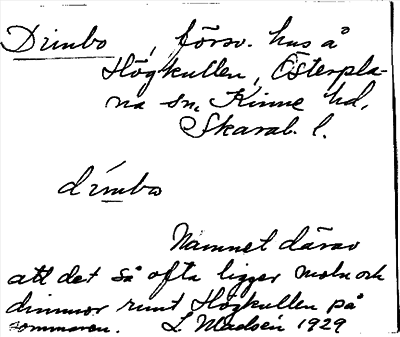 Dimbo, försv. hus å
Högkullen, Österpla-
na sn, Kinne hd,
Skarab. l.
dímbo
Namnet därav
att det så ofta ligger moln och
dimmor runt Högkullen på
sommaren. L Madsén 1929